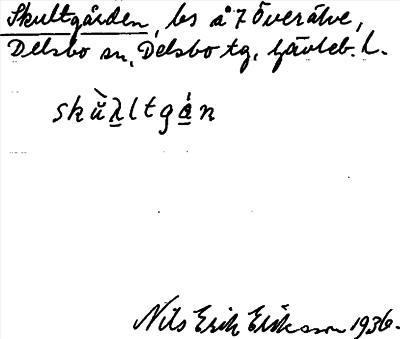 Skultgården, bs å 7 Överälve,
Delsbo sn, Delsbo tg, Gävleb. l.
skùltgån
Nils Erik Eriksson 1936.